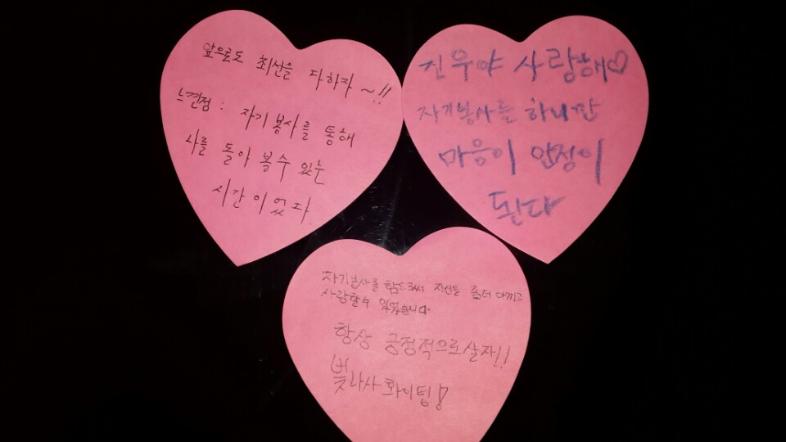 앞으로도 최선을 다하자 ~!!
느낀점 : 자기봉사를 통해
나를 돌아 볼수 있는
시간이었다.
진우야 사랑해♡
자기봉사를 하니깐
마음이 안정이
된다
자기봉사를 함으로써 자신을 좀더 아끼고
사랑할수 있었습니다.
항상 긍정적으로살자!!
빛나사 화이팅!